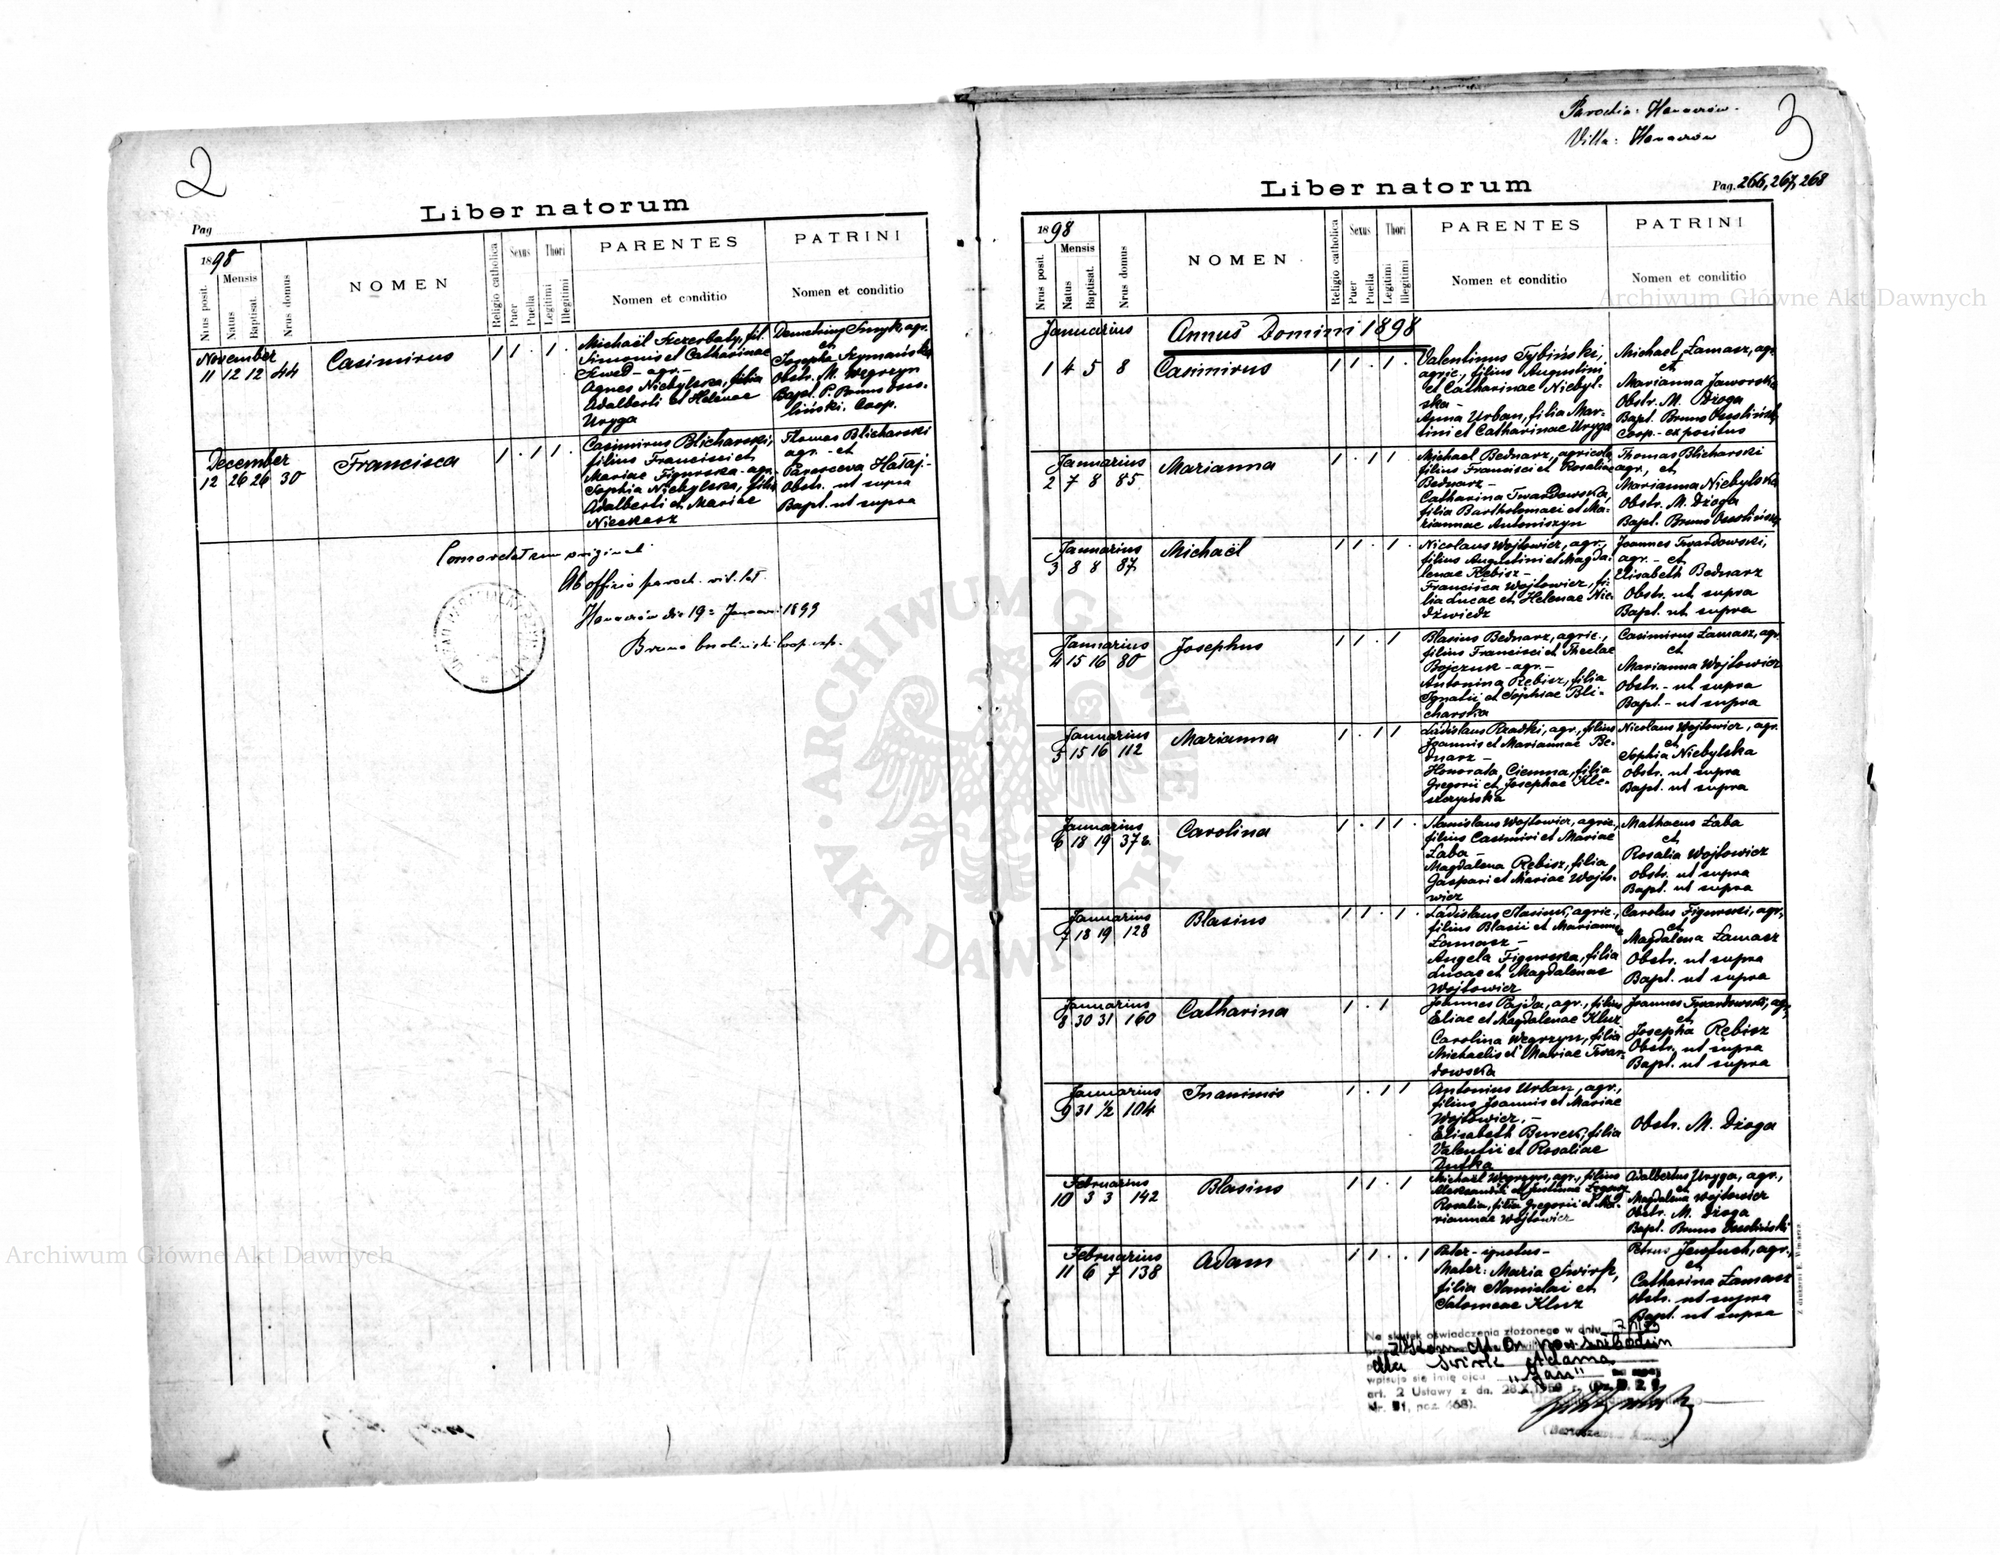 2
Liber natorum
Pag
1898
Mensis
Nrus posit.
Natus
Baptisat.
Nrus domus
NOMEN
Religio catholica
Sexus
Puer
Puella
Thori
Legitimi
Illegitimi
PARENTES
Nomen et conditio
PATRINI
Nomen et conditio
November
11 12 12 44
Casimirus
1 1 . 1 .
Michaël Szczerbaty, fil.
Simonis et Catharinae
Szwed - agr. -
Agnes Niebylska, filia
Adalberti et Helenae
Uryga
Demetrius Smyk agr.
et
Josepha Szymańska
Obstr. M. Węgrzyn
Bapt. P. Bruno Osso-
liński. Coop.
December
12 26 26 30
Francisca
1 . 1 1 .
Casimirus Blicharski,
filius Francisci et
Mariae Figurska - agr.
Sophia Niebylska, filia
Adalberti et Mariae
Nieckarz
Thomas Blicharski
agr. - et
Parasceva Hałaj. -
Obstr. ut supra
Bapt. ut supra
Concordat cum originali
Ab officio paroch. rit. lat.
Hanaczów die 19 Januar 1899
Bruno Ossoliński Coop. exp.
Parochia: Hanaczów.
Villa: Hanaczów
3
Liber natorum
Pag. 266, 267, 268
1898
Mensis
Nrus posit.
Natus
Baptisat.
Nrus domus
NOMEN
Religio catholica
Sexus
Puer
Thori
Legitimi
Illegitimi
PARENTES
Nomen et conditio
PATRINI
Nomen et conditio
Januarius
Annus Domini 1898
1 4 5 8
Casimirus
1 1 . 1 .
Valentinus Tybiński,
agric., filius Augustini
et Catharinae Niebyl-
ska -
Anna Urban, filia Mar-
tini et Catharinae Uryga
Michael Łamasz, agr.
et
Marianna Jaworska
Obstr. M. Dżoga
Bapt. Bruno Ossoliński
Coop. - expositus
Januarius
2 7 8 85
Marianna
1 . 1 1 .
Michael Bednarz, agricola
filius Francisci et Rosaliae
Bednarz -
Catharina Twardowska,
filia Bartholomaei et Ma-
riannae Antoniszyn
Thomas Blicharski
agr., et
Marianna Niebylska
Obstr. M. Dżoga
Bapt. Bruno Ossoliński
Januarius
3 8 8 87
Michaël
1 1 . 1 .
Nicolaus Wojtowicz, agr.,
filius Augustini et Magda-
lenae Rębisz -
Francisca Wojtowicz, fi-
lia Lucae et Helenae Nie-
dźwiedz
Joannes Twardowski,
agr. - et
Elisabeth Bednarz
Obstr. ut supra
Bapt. ut supra
Januarius
4 15 16 80
Josephus
1 1 . 1
Blasius Bednarz, agric.,
filius Francisci et Theclae
Bojczuk - agr. -
Antonina Rębisz, filia
Ignatii et Sophiae Bli-
charska
Casimirus Łamasz, agr.
et
Marianna Wojtowicz
Obstr. - ut supra
Bapt. - ut supra
Januarius
5 15 16 112
Marianna
1 . 1 1
Ladislaus Rzadki, agr., filius
Joannis et Mariannae Be-
dnarz -
Honorata Ciemna, filia
Gregorii et Josephae Kle-
szczyńska
Nicolaus Wojtowicz, agr.
et
Sophia Niebylska
Obstr. ut supra
Bapt. ut supra
Januarius
6 18 19 37 b.
Carolina
1 . 1 1 .
Stanislaus Wojtowicz, agric.,
filius Casimiri et Mariae
Łaba -
Magdalena Rębisz, filia
Gaspari et Mariae Wojto-
wicz
Mathaeus Łaba
et
Rosalia Wojtowicz
Obstr. ut supra
Bapt. ut supra
Januarius
7 18 19 128
Blasius
1 1 . 1 .
Ladislaus Stasiuk, agric.,
filius Blasii et Mariannae
Łamasz -
Angela Figurska, filia
Lucae et Magdalenae
Wojtowicz
Carolus Figurski, agr.,
et
Magdalena Łamasz
Obstr. ut supra
Bapt. ut supra
Januarius
8 30 31 160
Catharina
1 . 1
Johannes Pajda, agr., filius
Eliae et Magdalenae Klusz
Carolina Węgrzyn, filia
Michaelis et Mariae Twar-
dowska
Joannes Twardowski, agr.,
et
Josepha Rębisz
Obstr. ut supra
Bapt. ut supra
Januarius
9 31 1/2 104
Inanimis
1 . 1 1
Antonius Urban, agr.,
filius Joannis et Mariae
Wojtowicz. -
Elisabeth Burek, filia
Valentii et Rosaliae
Dutka
Obstr. M. Dżoga
Februarius
10 3 3 142
Blasius
1 1 . 1
Michaël Węgrzyn, agr., filius
Rosalia, filia Gregorii et Ma-
riannae Wojtowicz
Adalbertus Uryga, agr.,
et
Magdalena Wojtowicz
Obstr. M. Dżoga
Bapt. Bruno Ossoliński
Februarius
11 6 7 138
Adam
1 1 . . 1
Pater - ignotus -
Mater: Maria Świrk,
filia Stanislai et
Salomeae Klusz
Petrus agr.,
et
Catharina Łamasz
Obstr. ut supra
Bapt. ut supra
Na skutek oświadczenia złożonego w dniu
dla Świrk Adama
wpisuje się imię ojca "Jan"
art. 2 Ustawy z dn. 28.X.1950 r. (Dz. U. R. P.
Nr. 51, poz. 468).
Archiwum Główne Akt Dawnych
Archiwum Główne Akt Dawnych
ARCHIWUM GŁÓWNE AKT DAWNYCH